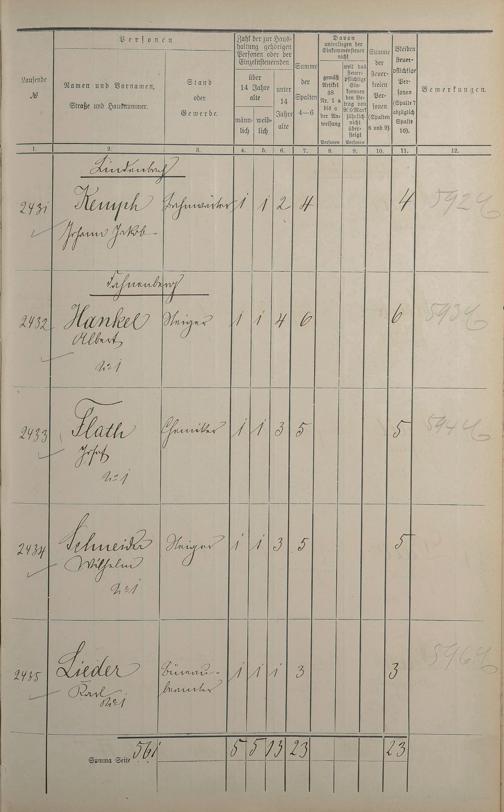 Laufende
№
Personen
Namen und Vornamen,
Straße und Hausnummer.
Stand
oder
Gewerbe.
Zahl der zur Haus-
haltung gehörigen
Personen oder der
Einzelsteuernden
über
14 Jahre
alte
männ-
lich
weib-
lich
unter
14
Jahre
alte
Summe
der
Spalten
4—6
Davon
unterliegen der
Einkommensteuer
nicht
gemäß
Artikel
18
Nr. 1 a
bis c
der An-
weisung
Personen
weil das
steuer-
pflichtige
Ein-
kommen
den Be-
trag von
900 Mark
jährlich
nicht
über-
steigt
Personen
Summe
der
steuer-
freien
Per-
sonen
(Spalten
8 und 9).
Bleiben
steuer-
pflichtige
Per-
sonen
(Spalte 7
abzüglich
Spalte
10).
Bemerkungen.
1. 2. 3. 4. 5. 6. 7. 8. 9. 10. 11. 12.
Lindenbach
2431 Kemph Bahnwärter 1 1 2 4 4
Johann Jakob
Fahnenberg
2432 Hankel Steiger 1 1 4 6 6
Albert
No 1
2433 Flath Chemiker 1 1 3 5 5
Josef
No 1
2434 Schneider Steiger 1 1 3 5 5
Wilhelm
No 1
2435 Lieder Büreau- 1 1 1 3 3
Karl beamter
No 1
Summa Seite 561 5 5 13 23 23